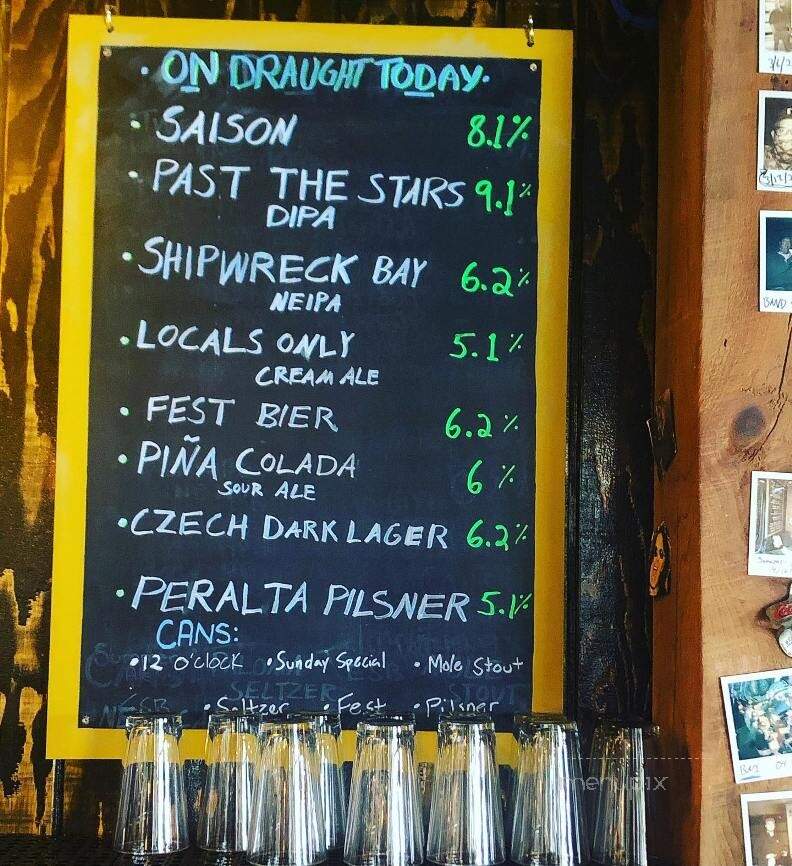 · ON DRAUGHT TODAY ·
• SAISON 8.1%
• PAST THE STARS 9.1%
DIPA
• SHIPWRECK BAY 6.2%
NEIPA
• LOCALS ONLY 5.1%
CREAM ALE
• FEST BIER 6.2%
• PIÑA COLADA 6%
SOUR ALE
• CZECH DARK LAGER 6.2%
• PERALTA PILSNER 5.1%
CANS:
• 12 O'CLOCK • Sunday Special • Mole Stout
SELTZER STOUT
• Seltzer • Fest • Pilsner
menupix
BAND